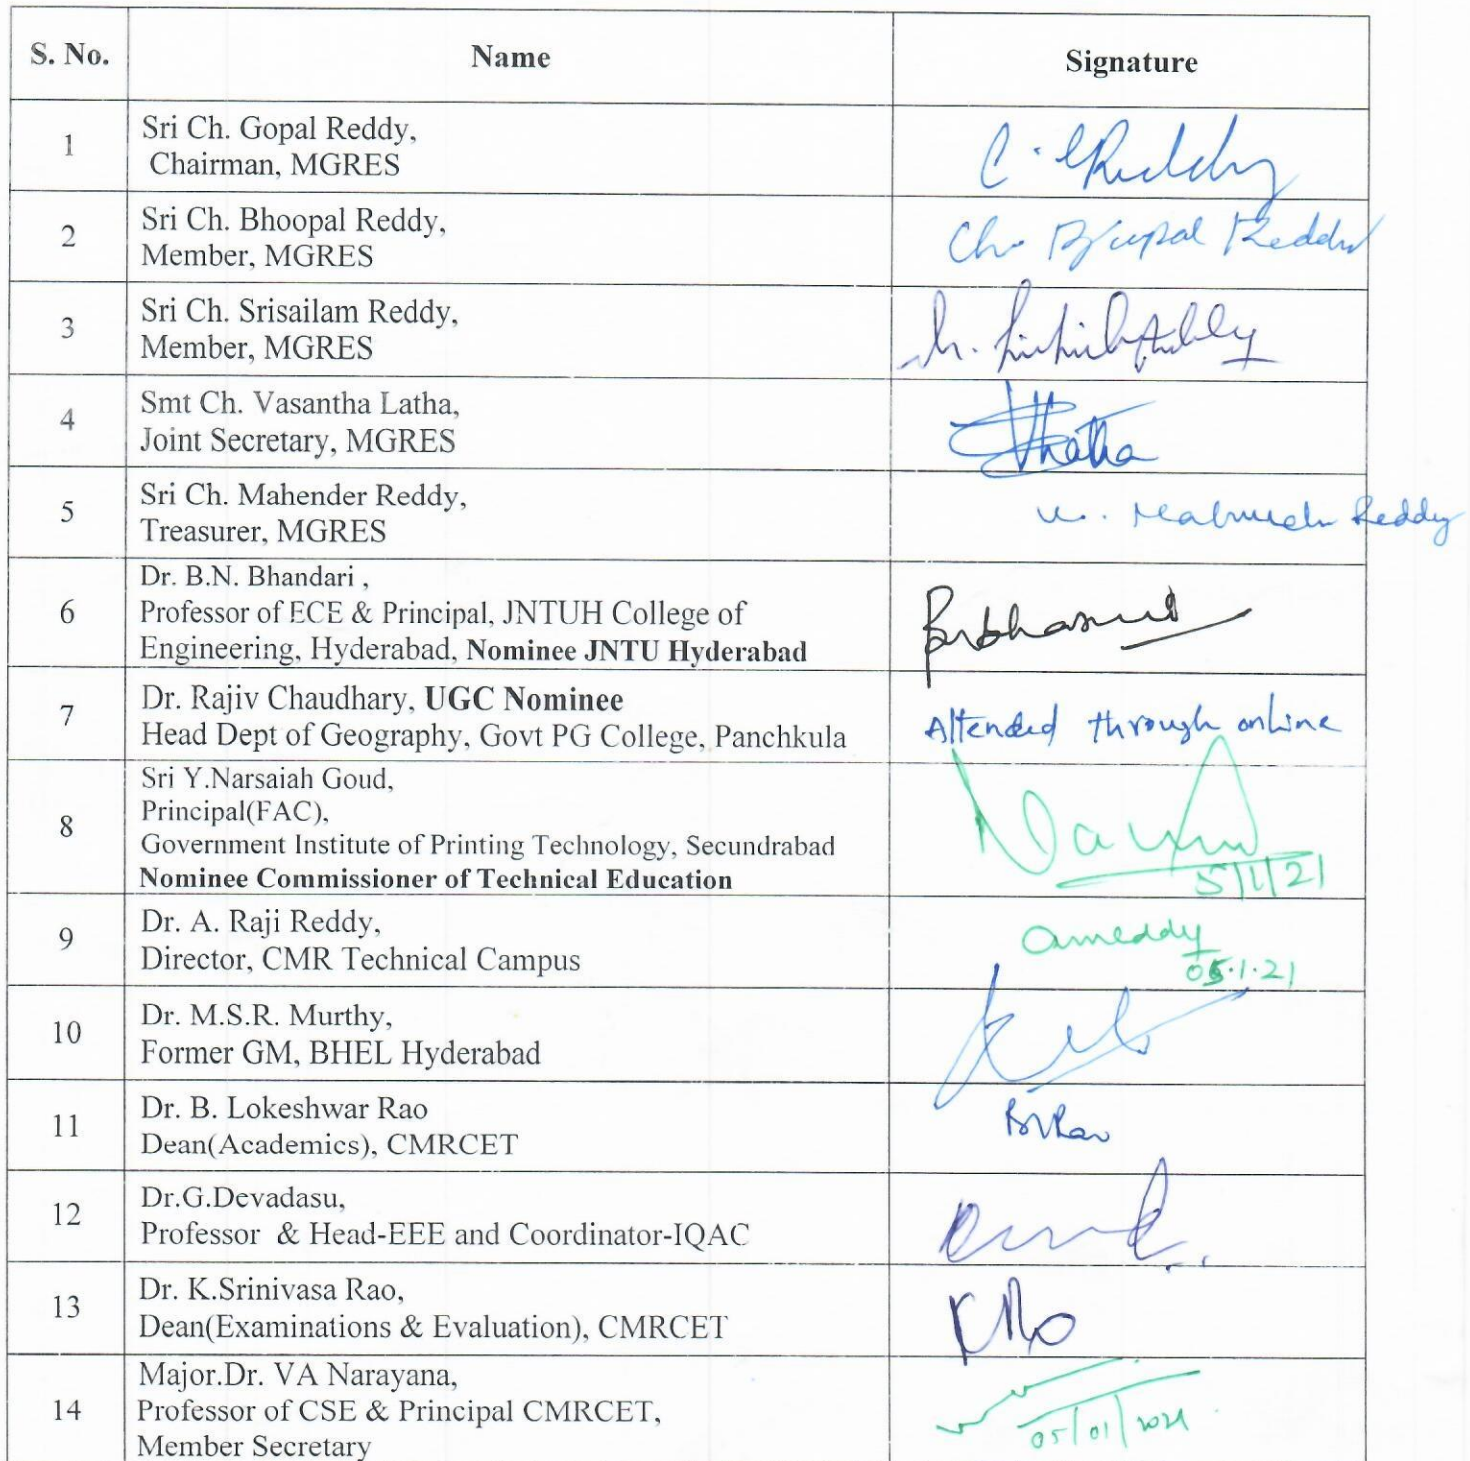 S. No. Name Signature
1 Sri Ch. Gopal Reddy,
Chairman, MGRES
C. GReddy
2 Sri Ch. Bhoopal Reddy,
Member, MGRES
Ch. Bhupal Reddy
3 Sri Ch. Srisailam Reddy,
Member, MGRES
4 Smt Ch. Vasantha Latha,
Joint Secretary, MGRES
5 Sri Ch. Mahender Reddy,
Treasurer, MGRES
Reddy
6 Dr. B.N. Bhandari ,
Professor of ECE & Principal, JNTUH College of
Engineering, Hyderabad, Nominee JNTU Hyderabad
7 Dr. Rajiv Chaudhary, UGC Nominee
Head Dept of Geography, Govt PG College, Panchkula
Attended through online
8 Sri Y.Narsaiah Goud,
Principal(FAC),
Government Institute of Printing Technology, Secundrabad
Nominee Commissioner of Technical Education
5/1/21
9 Dr. A. Raji Reddy,
Director, CMR Technical Campus
05.1.21
10 Dr. M.S.R. Murthy,
Former GM, BHEL Hyderabad
11 Dr. B. Lokeshwar Rao
Dean(Academics), CMRCET
12 Dr.G.Devadasu,
Professor & Head-EEE and Coordinator-IQAC
13 Dr. K.Srinivasa Rao,
Dean(Examinations & Evaluation), CMRCET
14 Major.Dr. VA Narayana,
Professor of CSE & Principal CMRCET,
Member Secretary
05/01/2021